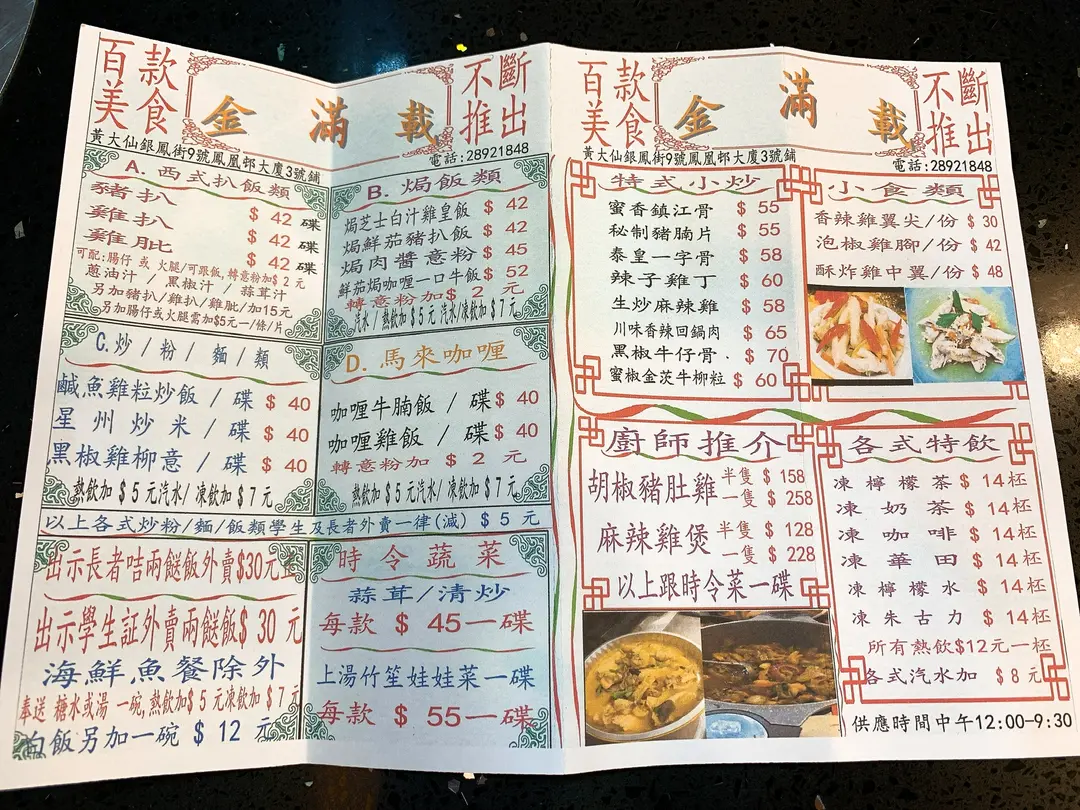 百款美食
金滿載
不斷推出
黃大仙銀鳳街9號鳳凰邨大廈3號鋪
電話:28921848
A. 西式扒飯類
豬扒 $ 42 碟
雞扒 $ 42 碟
雞肶 $ 42 碟
可配:腸仔 或 火腿/可跟飯,轉意粉加$ 2 元
蔥油汁 / 黑椒汁 / 蒜茸汁
另加豬扒/雞扒/雞肶/加15元
另加腸仔或火腿需加$5元一/條/片
B. 焗飯類
焗芝士白汁雞皇飯 $ 42
焗鮮茄豬扒飯 $ 42
焗肉醬意粉 $ 45
鮮茄焗咖喱一口牛飯 $ 52
轉意粉加 $ 2 元
汽水 / 熱飲加 $ 5 元 汽水/凍飲加 $ 7 元
C.炒 / 粉 / 麵 / 類
鹹魚雞粒炒飯 / 碟 $ 40
星州炒米 / 碟 $ 40
黑椒雞柳意 / 碟 $ 40
熱飲加 $ 5 元汽水/ 凍飲加 $ 7 元
D. 馬來咖喱
咖喱牛腩飯 / 碟 $ 40
咖喱雞飯 / 碟 $ 40
轉意粉加 $ 2 元
熱飲加 $ 5 元汽水/ 凍飲加 $ 7 元
以上各式炒粉/麵/飯類學生及長者外賣一律(減) $ 5 元
出示長者咭兩餸飯外賣$30元正
出示學生証外賣兩餸飯$ 30 元
海鮮魚餐除外
奉送 糖水或湯 一碗,熱飲加$ 5 元凍飲加 $ 7 元
白飯另加一碗 $ 12 元
時令蔬菜
蒜茸/清炒
每款 $ 45一碟
上湯竹笙娃娃菜一碟
每款 $ 55一碟
百款美食
金滿載
不斷推出
黃大仙銀鳳街9號鳳凰邨大廈3號鋪
電話:28921848
特式小炒
蜜香鎮江骨 $ 55
秘制豬腩片 $ 55
泰皇一字骨 $ 58
辣子雞丁 $ 60
生炒麻辣雞 $ 58
川味香辣回鍋肉 $ 65
黑椒牛仔骨 . $ 70
蜜椒金茨牛柳粒 $ 60
小食類
香辣雞翼尖/份 $ 30
泡椒雞腳/份 $ 42
酥炸雞中翼/份 $ 48
廚師推介
胡椒豬肚雞 半隻 $ 158
一隻 $ 258
麻辣雞煲 半隻 $ 128
一隻 $ 228
以上跟時令菜一碟
各式特飲
凍檸檬茶 $ 14杯
凍奶茶 $ 14杯
凍咖啡 $ 14杯
凍華田 $ 14杯
凍檸檬水 $ 14杯
凍朱古力 $ 14杯
所有熱飲$12元一杯
各式汽水加 $ 8 元
供應時間中午12:00-9:30